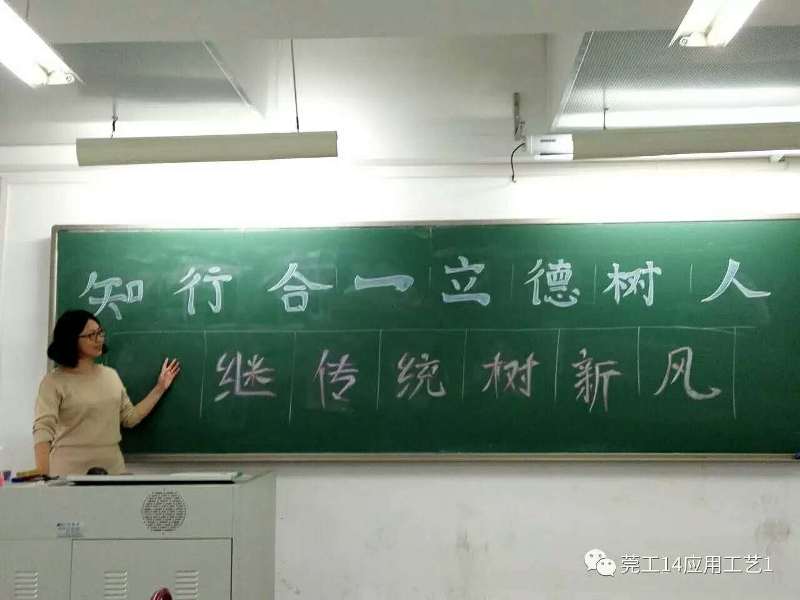 知行合一立德树人
继传统树新风
莞工14应用工艺1